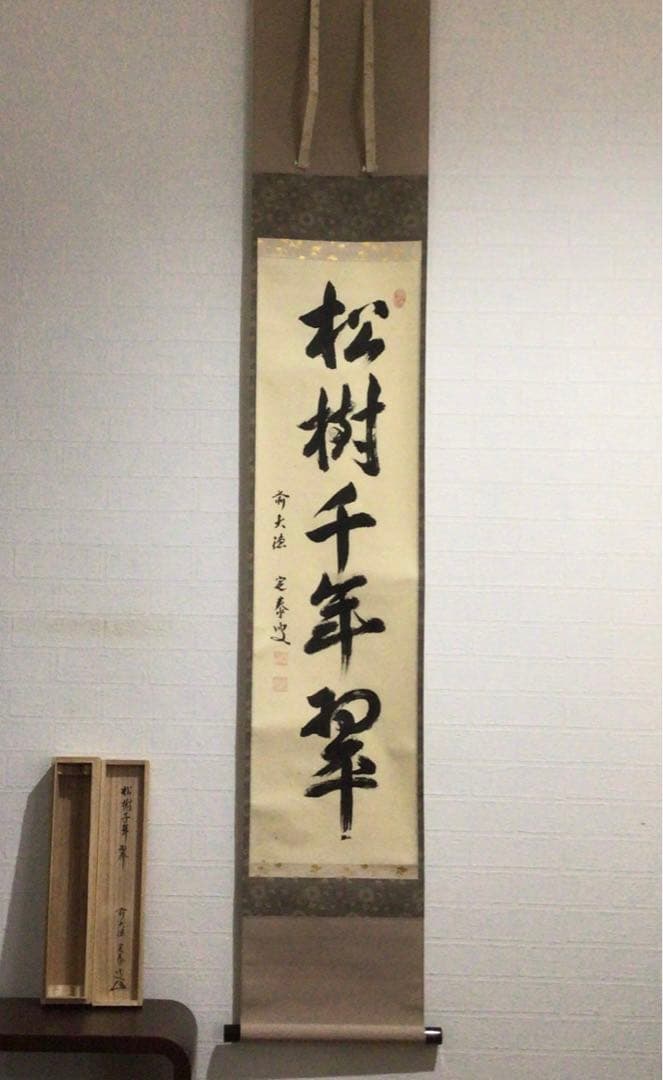 松樹千年翠
前大徳 定泰叟
松樹千年翠
前大徳 定泰